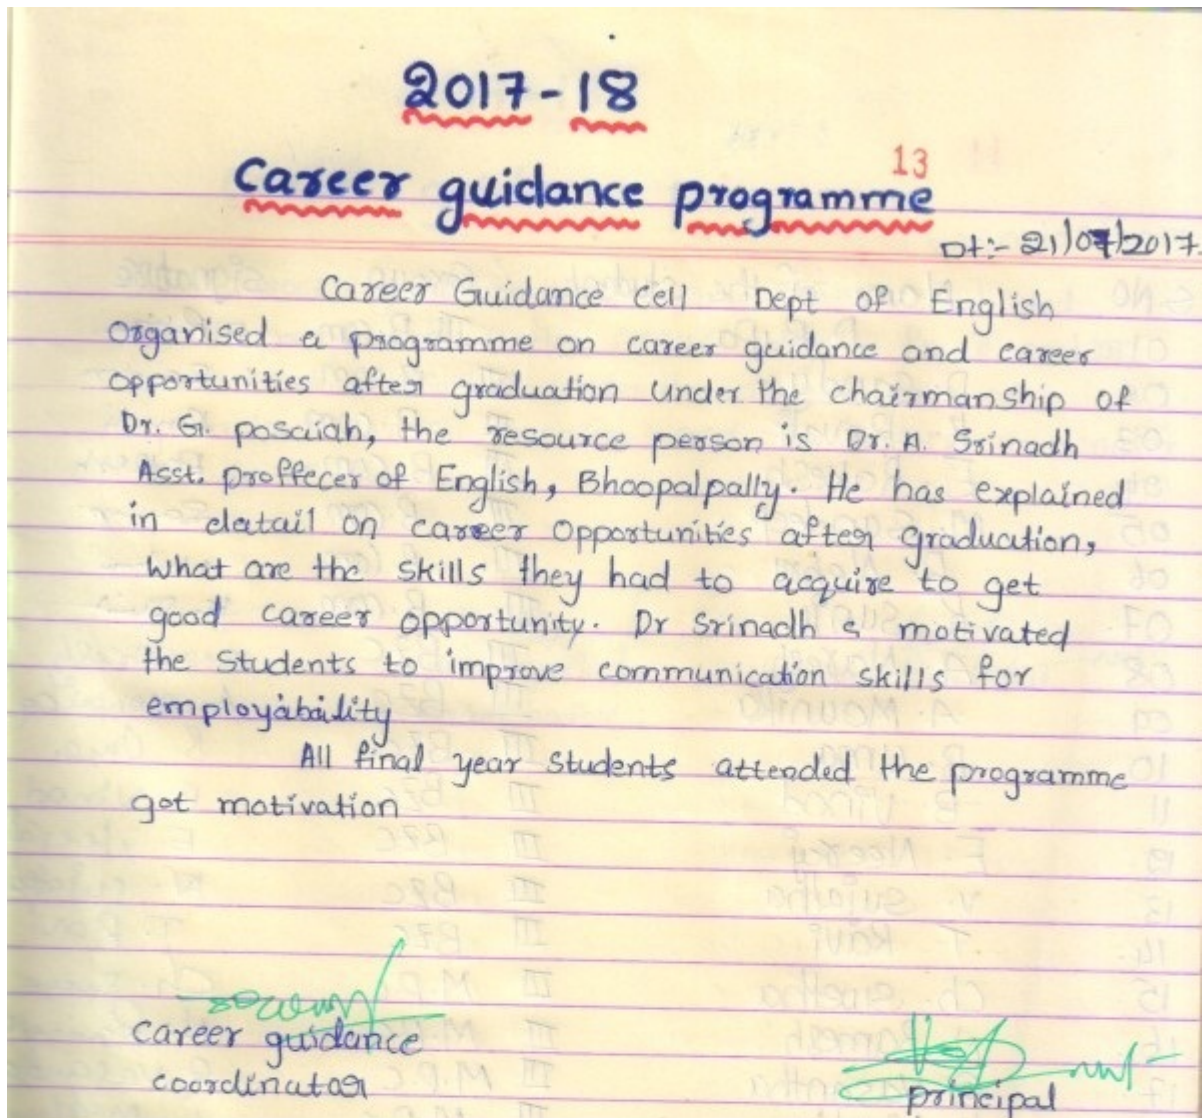 2017-18
13
Career guidance programme
Dt:- 21/07/2017.
Career Guidance Cell Dept of English
organised a programme on career guidance and career
opportunities after graduation under the chairmanship of
Dr. G. posaiah, the resource person is Dr. A. Srinadh
Asst. proffecer of English, Bhoopalpally. He has explained
in datail on career opportunities after graduation,
What are the skills they had to acquire to get
good career opportunity. Dr Srinadh motivated
the students to improve communication skills for
employability
All final year students attended the programme
got motivation
career guidance
coordinator
principal